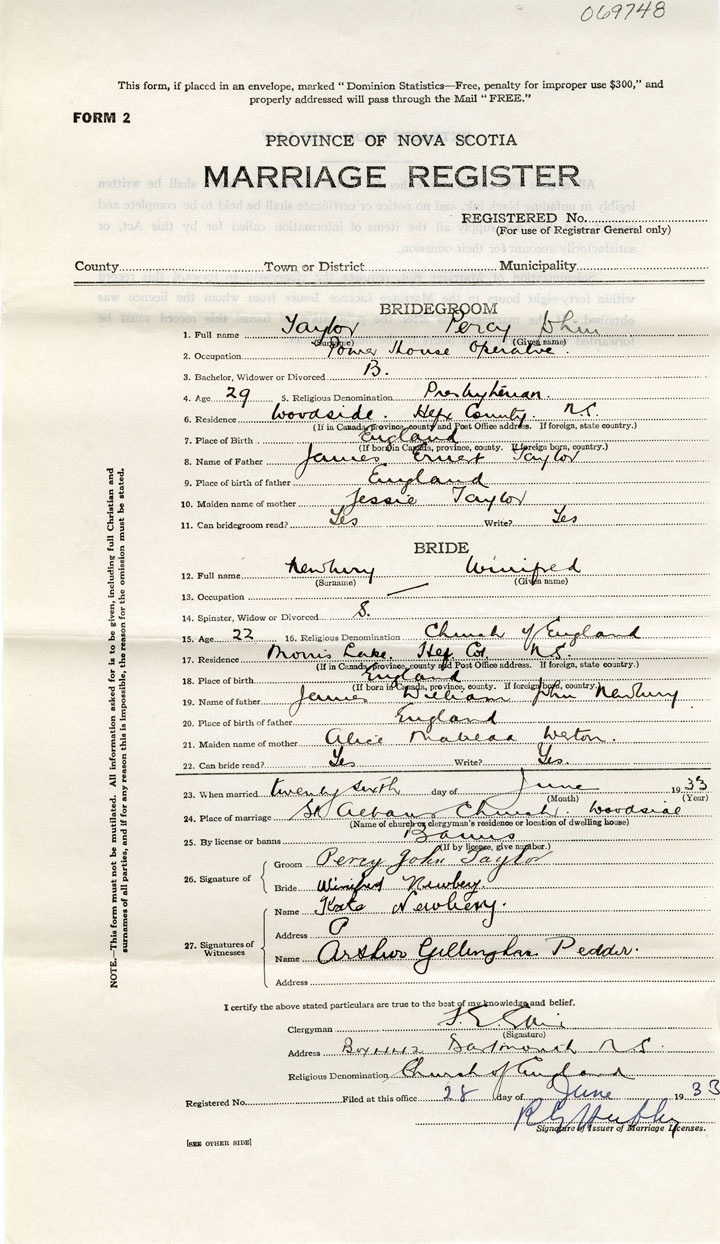 069748
This form, if placed in an envelope, marked "Dominion Statistics—Free, penalty for improper use $300," and
properly addressed will pass through the Mail "FREE."
FORM 2
PROVINCE OF NOVA SCOTIA
MARRIAGE REGISTER
REGISTERED No.
(For use of Registrar General only)
County Town or District Municipality
BRIDEGROOM
1. Full name Taylor Percy John
(Surname) (Given name)
2. Occupation Power House Operative.
3. Bachelor, Widower or Divorced B.
4. Age 29 5. Religious Denomination Presbyterian.
6. Residence Woodside. Hfx County. N.S.
(If in Canada, province, county and Post Office address. If foreign, state country.)
7. Place of Birth England
(If born in Canada, province, county. If foreign born, country.)
8. Name of Father James Ernest Taylor
9. Place of birth of father England
10. Maiden name of mother Jessie Taylor
11. Can bridegroom read? Yes Write? Yes
BRIDE
12. Full name Newbury Winifred
(Surname) (Given name)
13. Occupation —
14. Spinster, Widow or Divorced S.
15. Age 22 16. Religious Denomination Church of England
17. Residence Morris Lake. Hfx Co. N.S.
(If in Canada, province, county and Post Office address. If foreign, state country.)
18. Place of birth England
(If born in Canada, province, county. If foreign born, country.)
19. Name of father James William John Newbury
20. Place of birth of father England
21. Maiden name of mother Alice
22. Can bride read? Yes Write? Yes.
23. When married twenty sixth day of June 1933
(Month) (Year)
24. Place of marriage St Albans Church. Woodside
(Name of church or clergyman's residence or location of dwelling house)
25. By license or banns Banns
(If by licence, give number.)
26. Signature of
Groom Percy John Taylor
Bride Winifred Newbery.
27. Signatures of Witnesses
Name Kate Newbery.
Address
Name Arthur Gillingham Pedder.
Address
I certify the above stated particulars are true to the best of my knowledge and belief.
Clergyman
(Signature)
Address Box Dartmouth N.S.
Religious Denomination Church of England
Registered No. Filed at this office 28 day of June 1933
Signature of Issuer of Marriage Licenses.
[SEE OTHER SIDE]
NOTE.—This form must not be mutilated. All information asked for is to be given, including full Christian and
surnames of all parties, and if for any reason this is impossible, the reason for the omission must be stated.